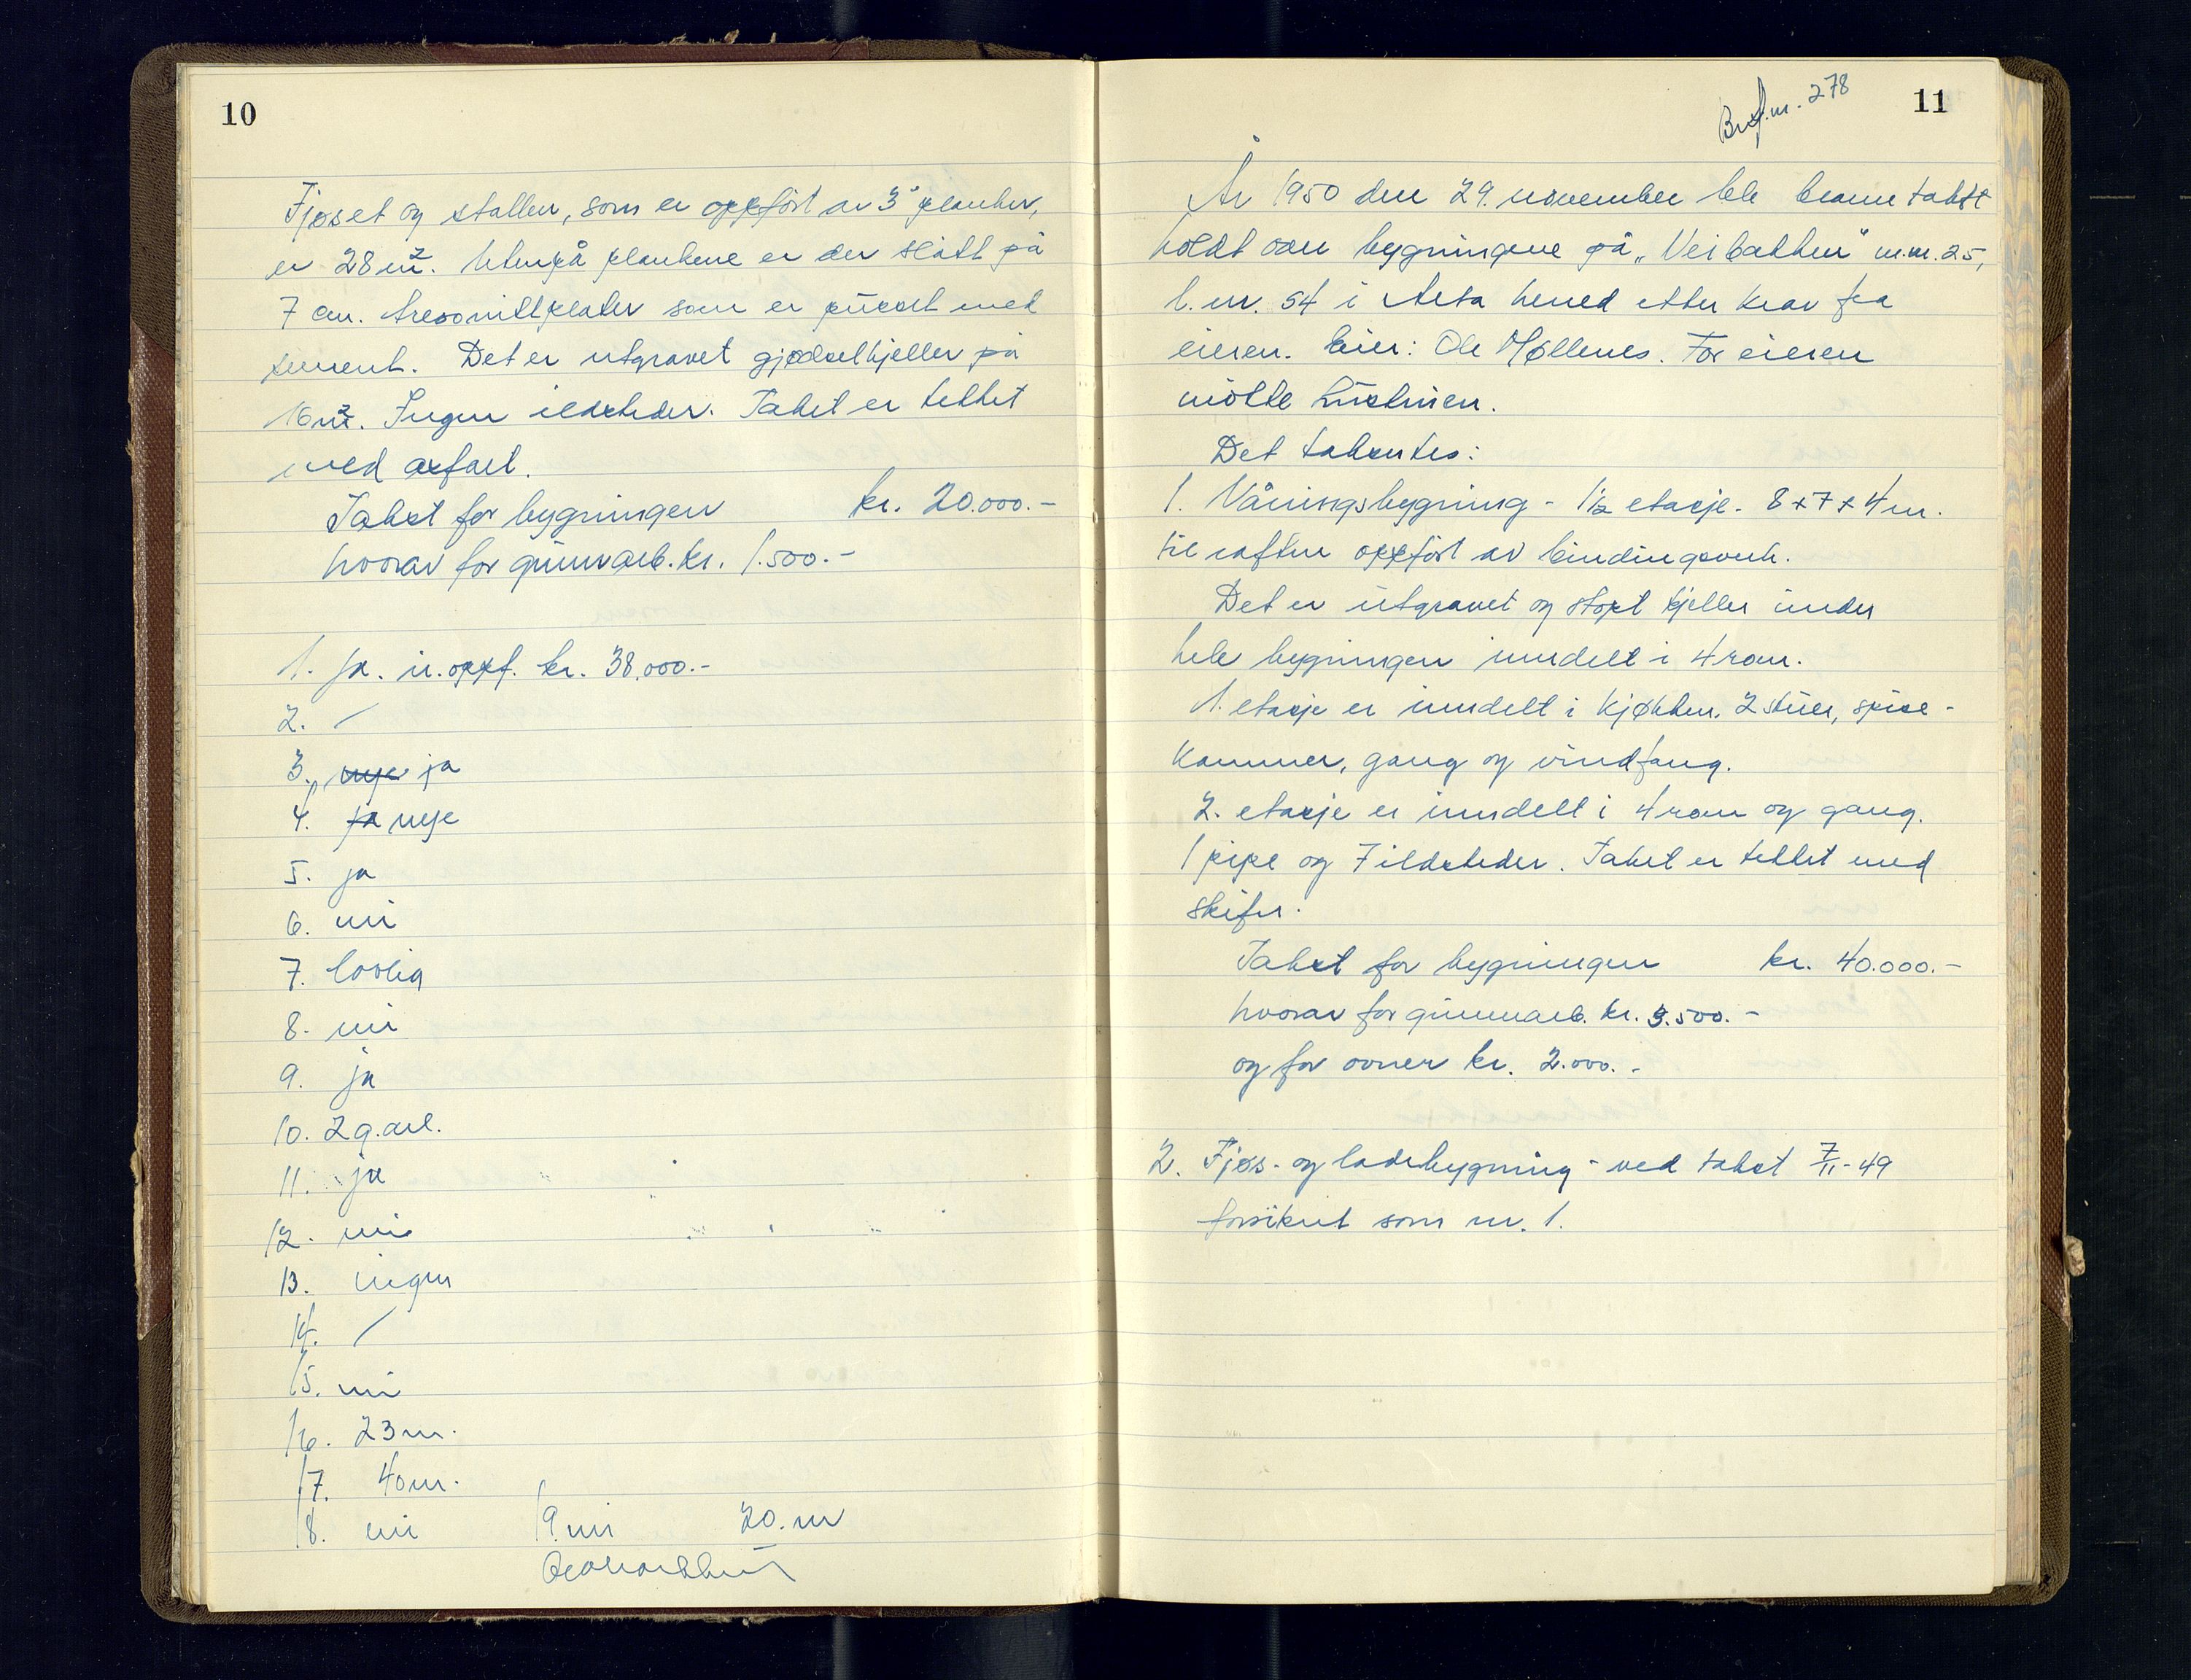 10
Fjøset og stallen, som er oppført av 3" planker,
er 28 m². Utenpå plankene er der slått på
7 cm. tresonittplater som er pusset med
sement. Det er utgravet gjødselkjeller på
16 m². Ingen ildsteder. Taket er tekket
med asfalt.
Takst for bygningen kr. 20.000.-
hvorav for grunnarb. kr. 1.500.-
1. Ja. u. oppf. kr. 38.000.-
2. /
3. mye ja
4. ja mye
5. ja
6. nei
7. lovlig
8. nei
9. ja
10. 2 g. årl.
11. ja
12. nei
13. ingen
14. /
15. nei
16. 23 m.
17. 40 m.
18. nei 19. nei 20. nei
11
Br.f.nr. 278
År 1950 den 29. november ble branntakst
holdt over bygningene på "Veibakken" m.nr. 25,
l. nr. 54 i Ørsta herred etter krav fra
eieren. Eier: Ole Møllenes. For eieren
møtte hustruen.
Det takserte:
1. Våningsbygning - 1½ etasje - 8 x 7 x 4 m.
til raften oppført av bindingsverk.
Det er utgravet og støpt kjeller under
hele bygningen inndelt i 4 rom.
1. etasje er inndelt i kjøkken, 2 stuer, spise-
kammer, gang og vindfang.
2. etasje er inndelt i 4 rom og gang.
1 pipe og 7 ildsteder. Taket er tekket med
skifer.
Takst for bygningen kr. 40.000.-
hvorav for grunnarb. kr. 3.500.-
og for ovner kr. 2.000.-
2. Fjøs- og ladebygning - ved takst 7/11-49
forsikret som nr. 1.